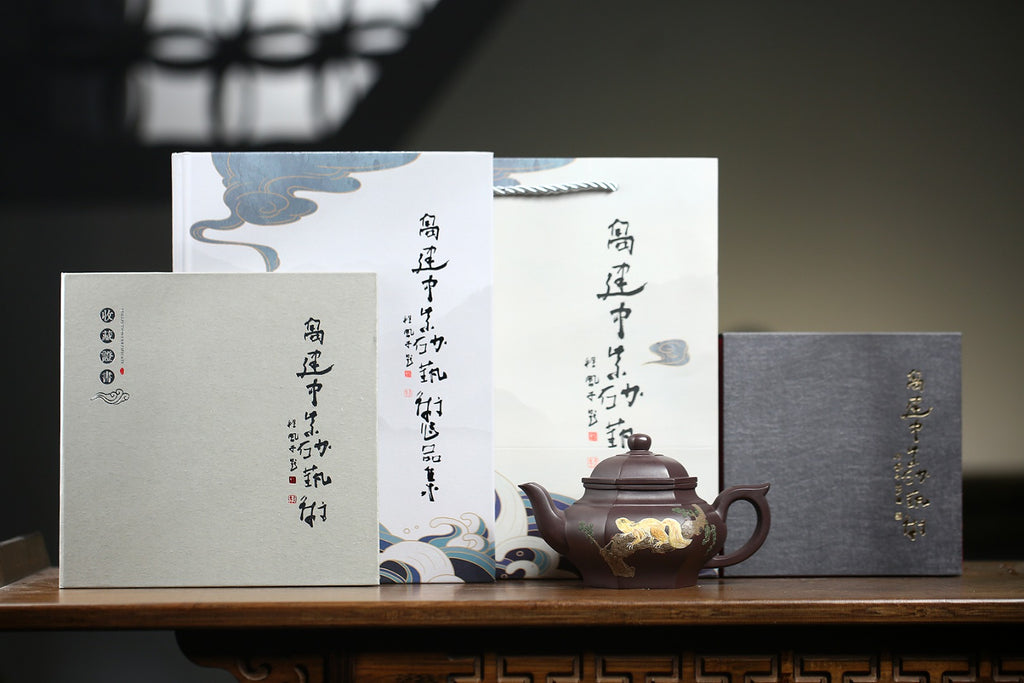 收藏證書
高建中紫砂藝術
程風子題
高建中紫砂藝術作品集
程風子題
高建中紫砂藝
程風子題
高建中紫砂藝術